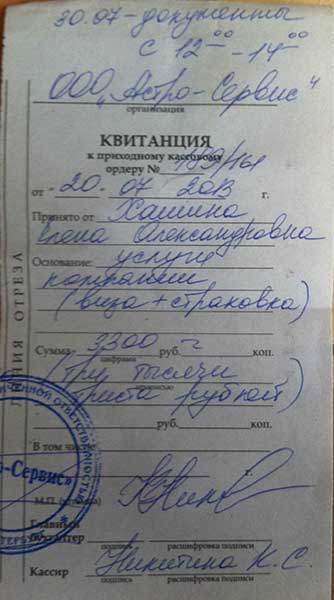 30.07 - документы
с 12⁰⁰ - 14⁰⁰
ООО „Астро-Сервис"
организация
КВИТАНЦИЯ
к приходному кассовому
ордеру № 189/161
от " 20 " 07 2013 г.
Принято от Хашина
Елена Александровна
Основание: услуги
компании
(виза + страховка)
Сумма 3300 руб. - коп.
цифрами
(три тысячи
прописью
триста рублей)
руб. коп.
В том числе
г.
М.П.
Главный
бухгалтер
подпись расшифровка подписи
Кассир Никитина К.С.
подпись расшифровка подписи
ЛИНИЯ ОТРЕЗА
ИЧЕННОЙ ОТВЕТСТВЕННОСТЬЮ
о-Сервис»